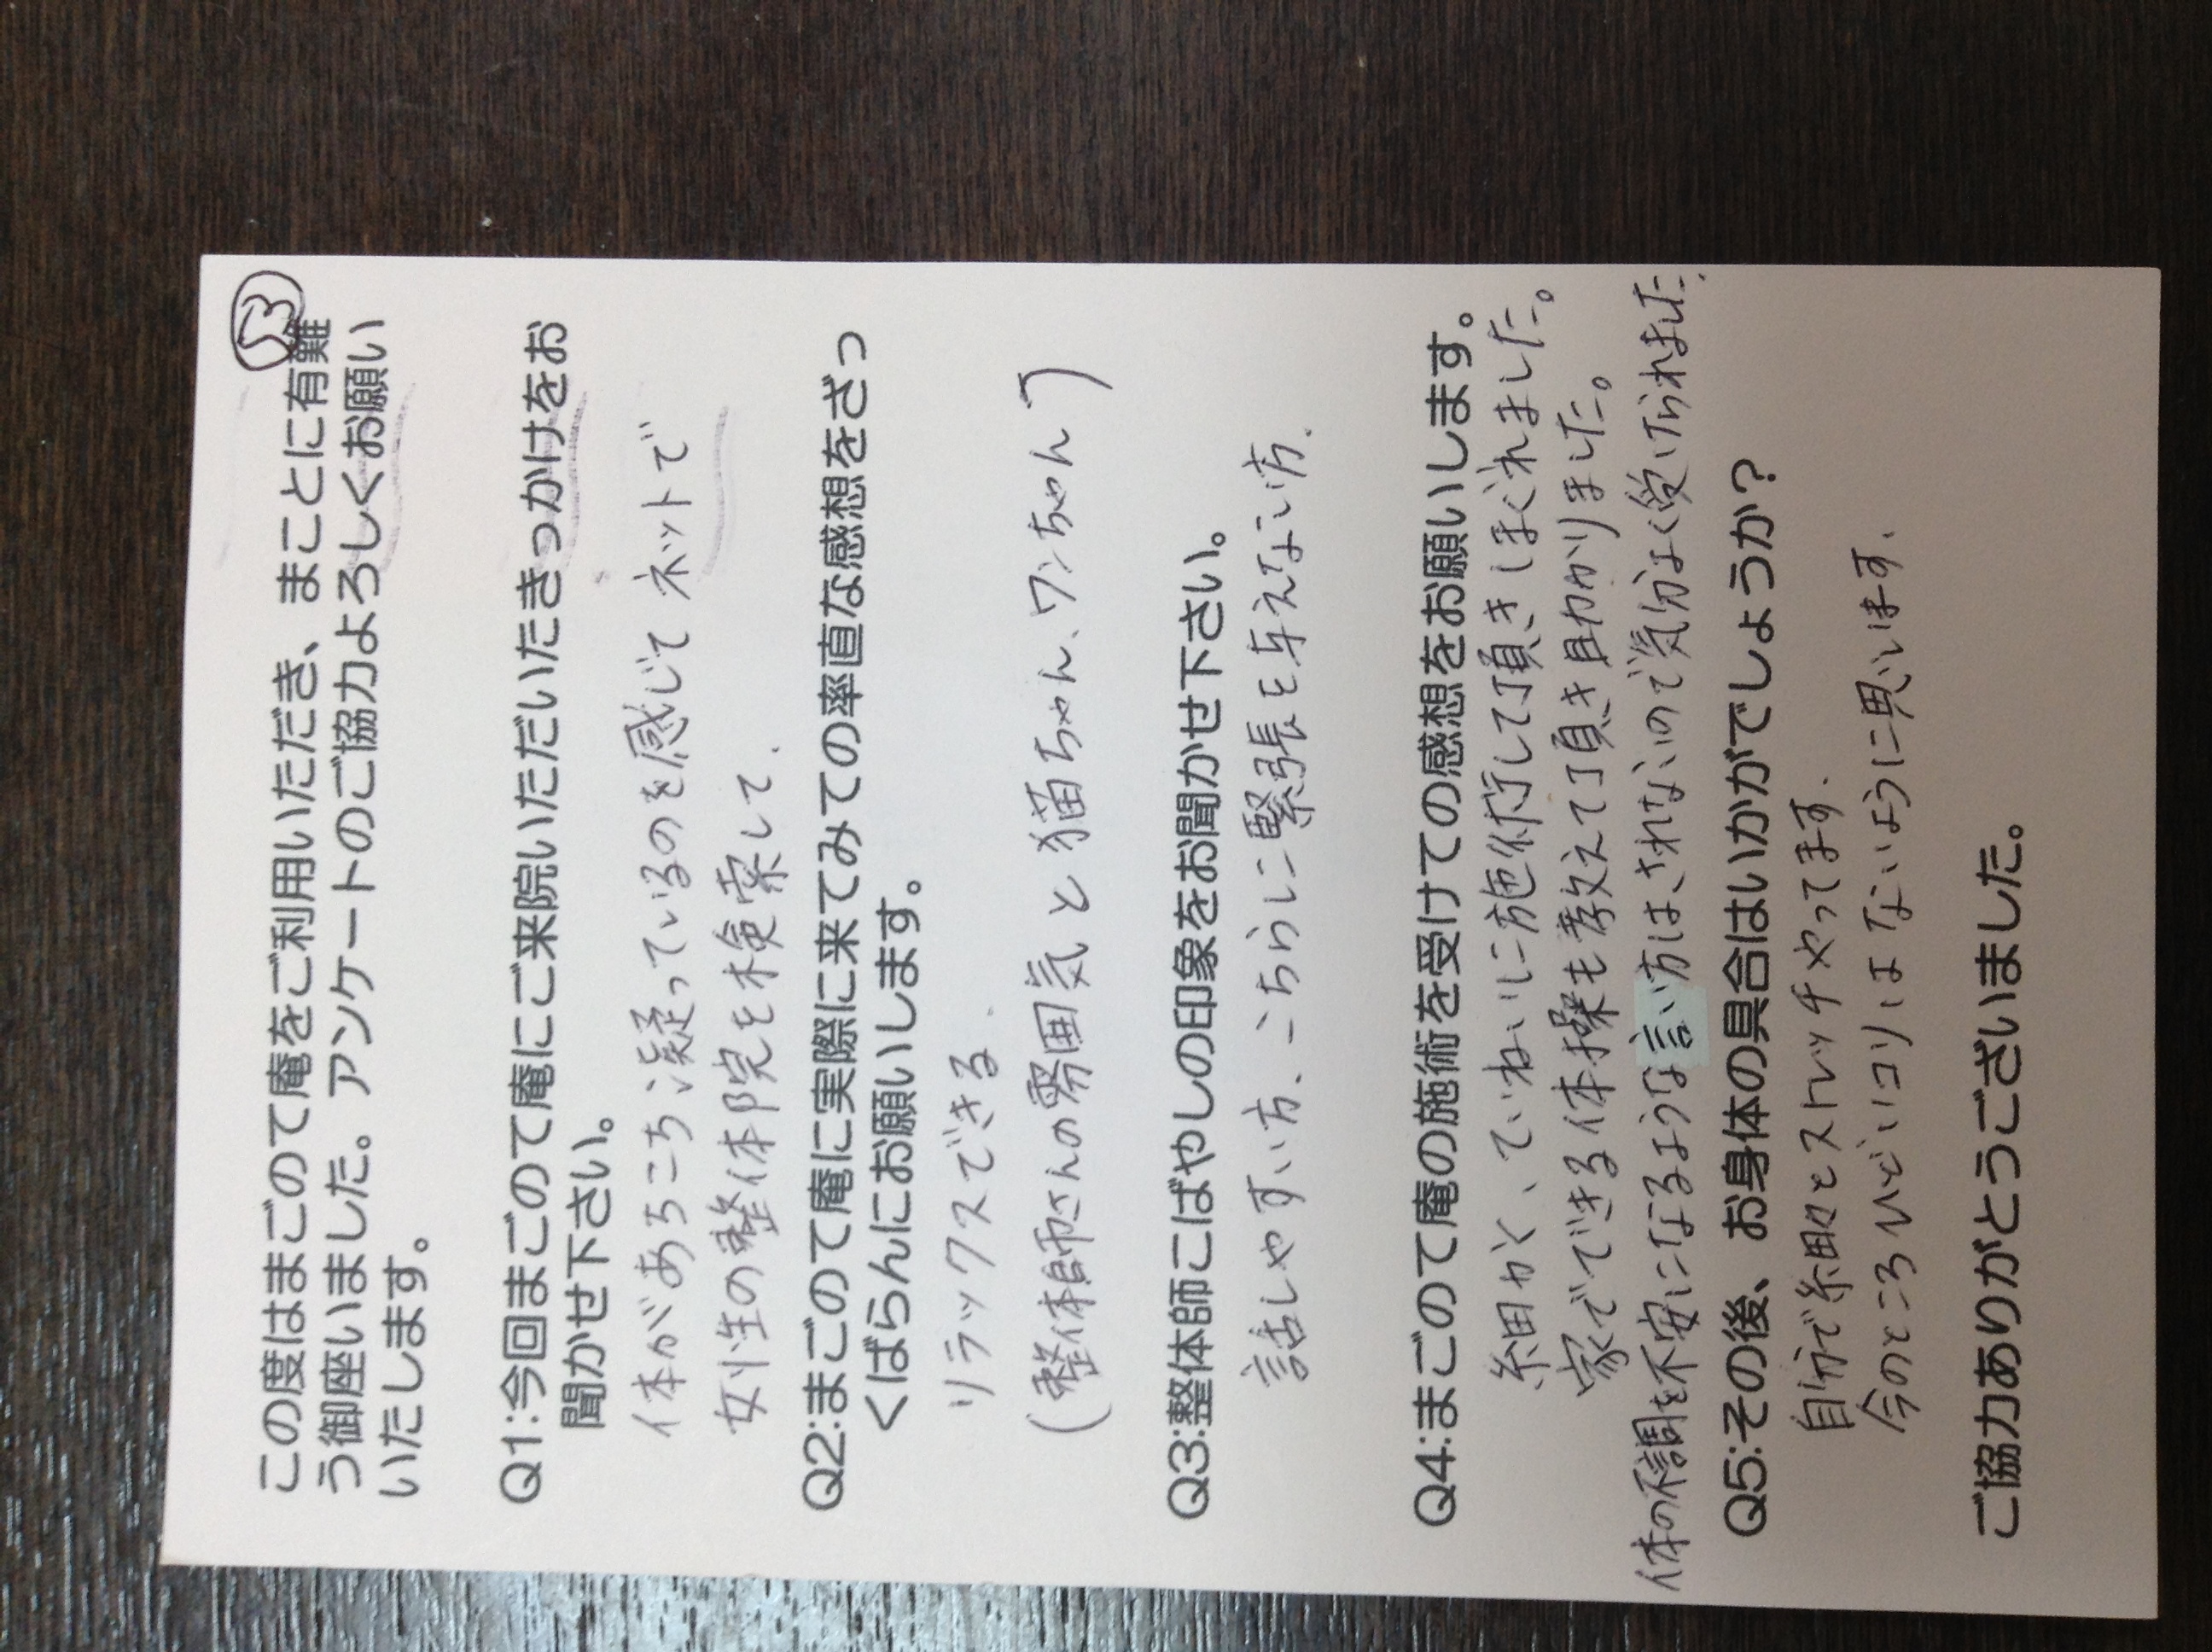 この度はまごのて庵をご利用いただき、まことに有難
う御座いました。アンケートのご協力よろしくお願い
いたします。
Q1:今回まごのて庵にご来院いただいたきっかけをお
聞かせ下さい。
体があちこち凝っているのを感じて ネットで
女性の整体院を検索して、
Q2:まごのて庵に実際に来てみての率直な感想をざっ
くばらんにお願いします。
リラックスできる、
(整体師さんの雰囲気と猫ちゃん、ワンちゃん)
Q3:整体師こばやしの印象をお聞かせ下さい。
話しやすい方、こちらに緊張を与えない方、
Q4:まごのて庵の施術を受けての感想をお願いします。
細かく、ていねいに施術して頂きほぐれました。
家でできる体操も教えて頂き助かりました。
体の不調を不安になるような言い方はされないので気分よく受けられました、
Q5:その後、お身体の具合はいかがでしょうか?
自分で細々とストレッチやってます、
今のところひどいコリはないように思います、
ご協力ありがとうございました。